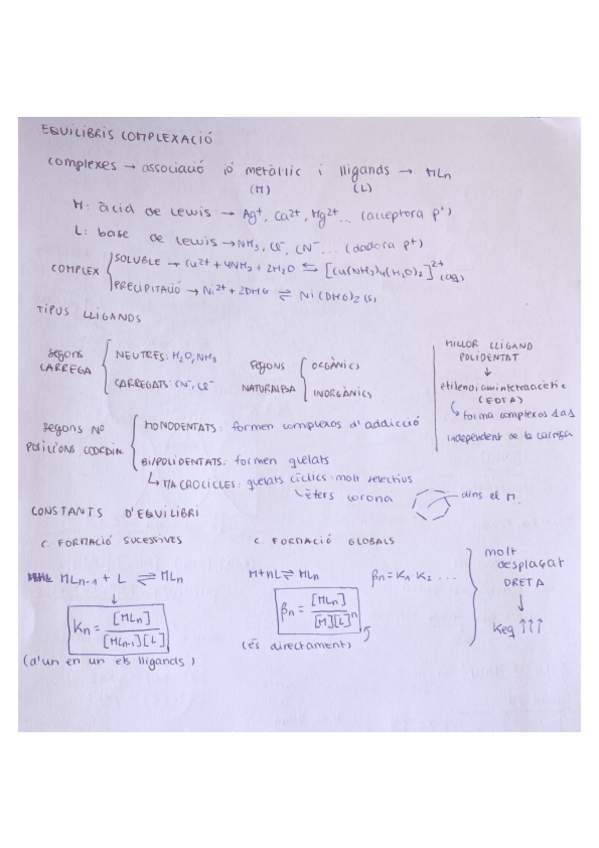 EQUILIBRIS COMPLEXACIÓ
complexes → associació ió metàl·lic i lligands → MLn
(M) (L)
M: àcid de Lewis → Ag⁺, Ca²⁺, Mg²⁺... (acceptora p⁺)
L: base de Lewis → NH₃, Cl⁻, CN⁻... (dadora p⁺)
COMPLEX
SOLUBLE → Cu²⁺ + 4NH₃ + 2H₂O ⇆ [Cu(NH₃)₄(H₂O)₂]²⁺(aq)
PRECIPITACIÓ → Ni²⁺ + 2DMG ⇌ Ni(DMG)₂(s)
TIPUS LLIGANDS
segons CÀRREGA
NEUTRES: H₂O, NH₃
CARREGATS: CN⁻, Cl⁻
segons NATURALESA
ORGÀNICS
INORGÀNICS
MILLOR LLIGAND
POLIDENTAT
↓
etilendiamintetraacètic
(EDTA)
↳ forma complexos 1 a 1
independent de la càrrega
segons Nº
POSICIONS COORDIN.
MONODENTATS: formen complexos d'addicció
BI/POLIDENTATS: formen quelats
↳ MACROCICLES: quelats cíclics molt selectius
↳ èters corona
dins el M.
CONSTANTS D'EQUILIBRI
C. FORMACIÓ SUCESSIVES
MLn-1 + L ⇌ MLn
↓
Kn = [MLn] / [MLn-1][L]
(d'un en un els lligands)
C. FORMACIÓ GLOBALS
M + nL ⇌ MLn
βn = K₁ · K₂ ...
βn = [MLn] / [M][L]ⁿ
(és directament)
molt
desplaçat
DRETA
↓
Keq ↑↑↑